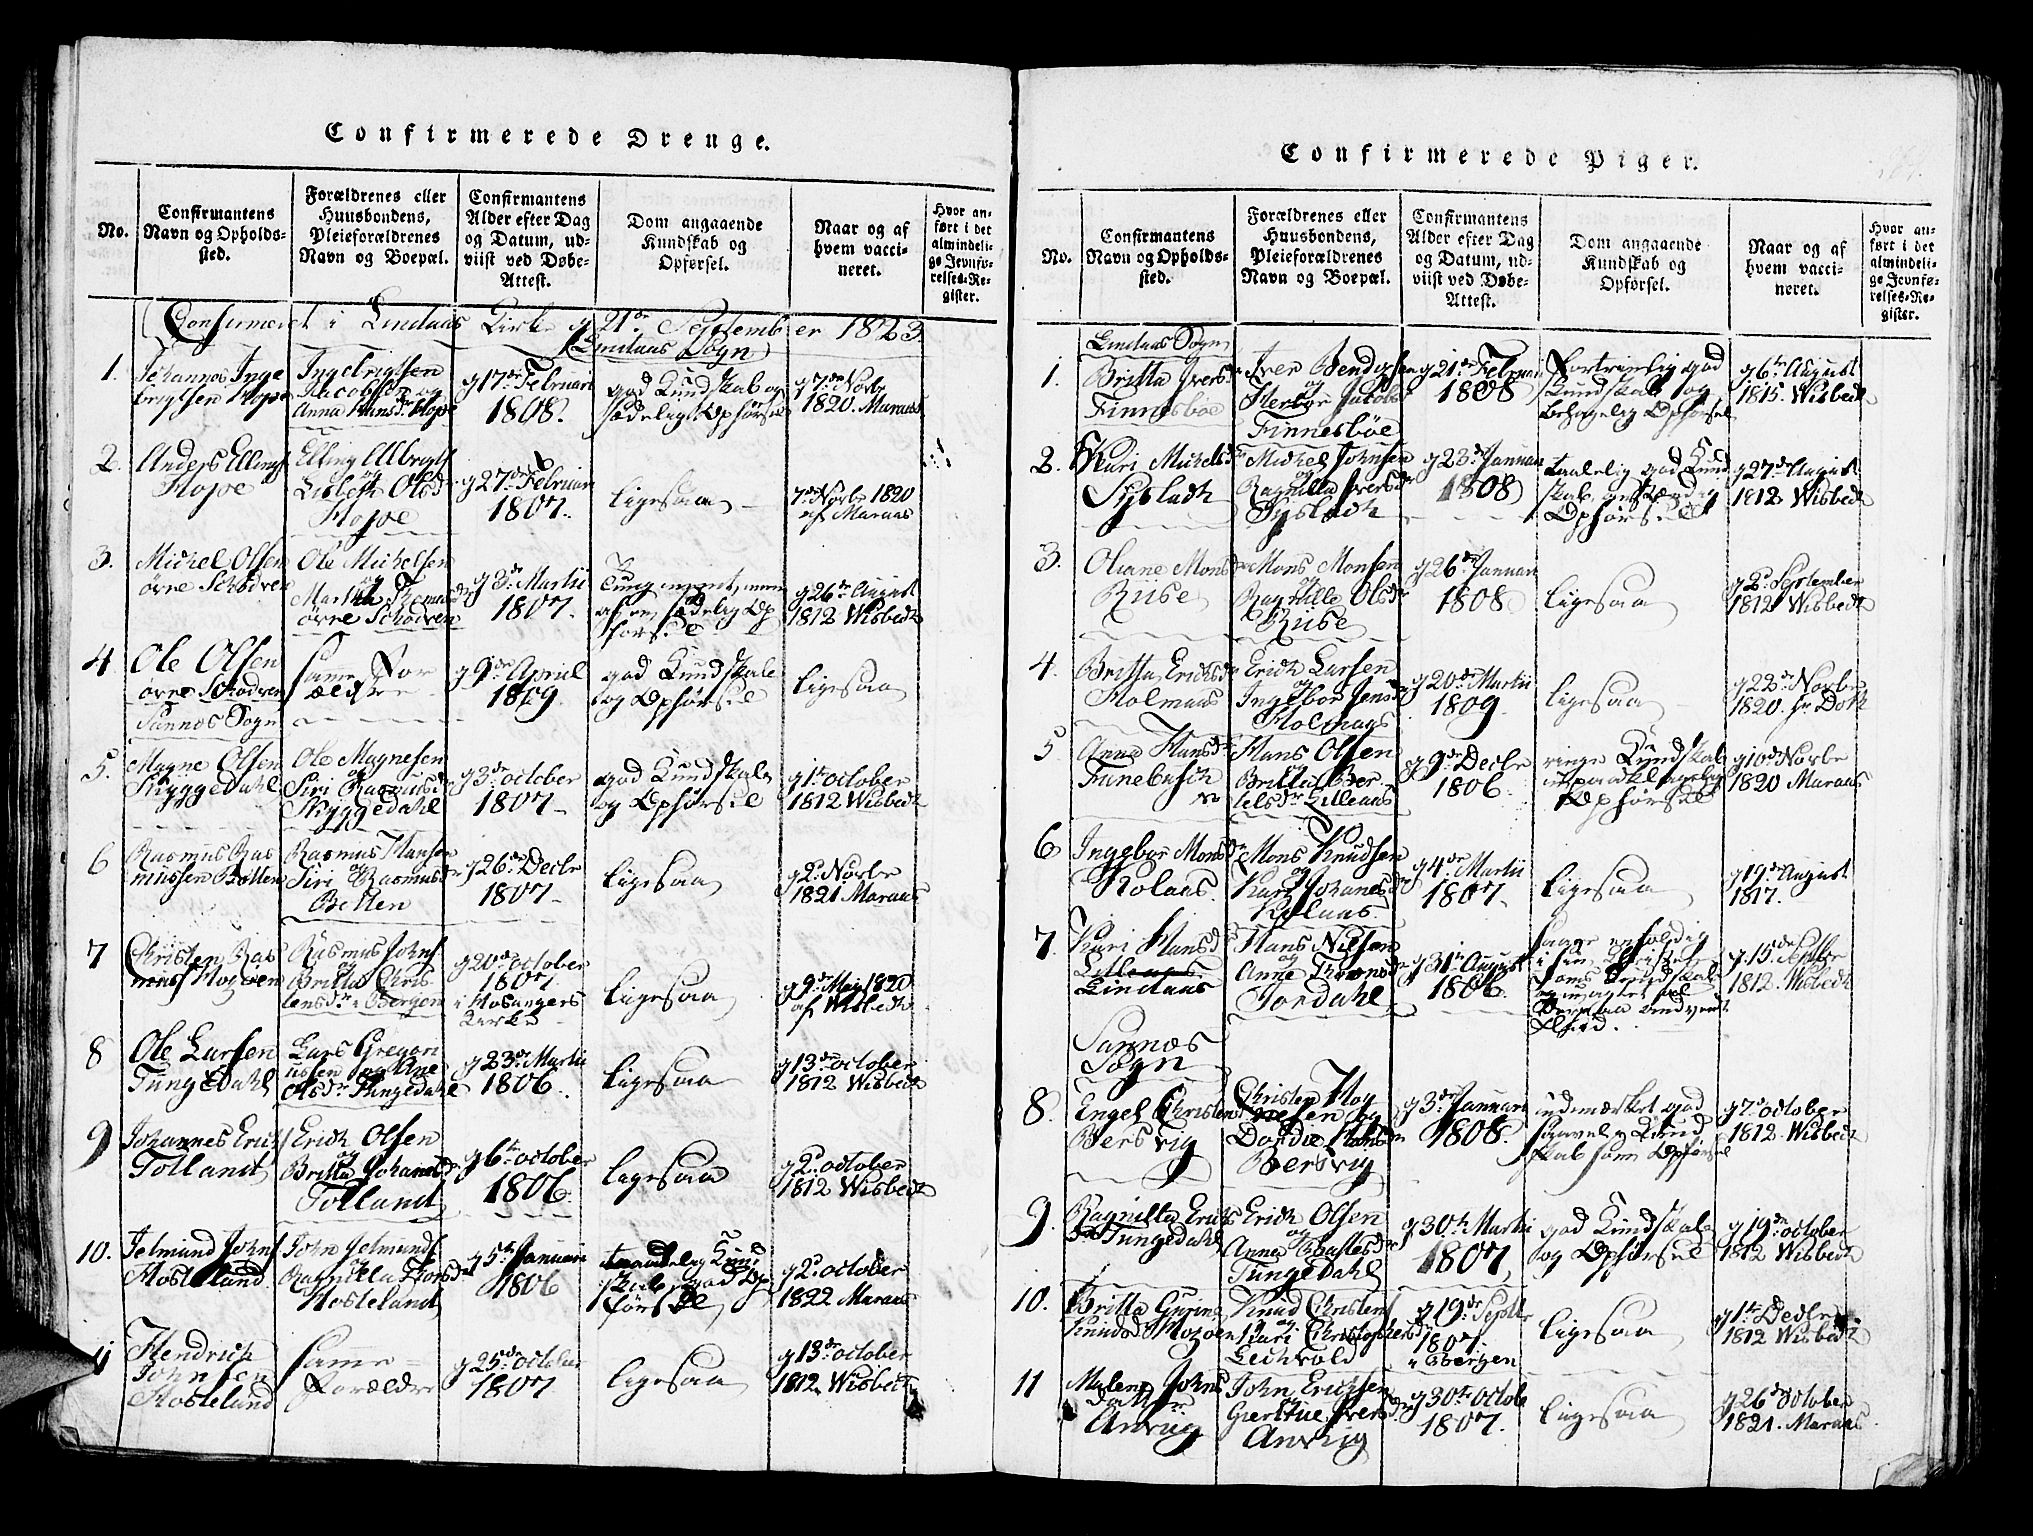 Confirmerede Drenge.
No.
Confirmantens
Navn og Opholds-
sted.
Forældrenes eller
Huusbondens,
Pleieforældrenes
Navn og Boepæl.
Confirmantens
Alder efter Dag
og Datum, ud-
viist ved Døbe-
Attest.
Dom angaaende
Kundskab og
Opførsel.
Naar og af
hvem vacci-
neret.
Hvor an-
ført i det
almindeli-
ge Jevnfø-
relses-Re-
gister.
Confirmeret i Lindaas Kirke g 21de September 1823
Lindaas Sogn
1.
Johannes Inge
brigtsen Hope
Ingebrigtsen
Jacobsen og
Anna Hansdr Hope
g 17de Februari
1808.
god Kundskab og
sædelig Opførsel
g 7de Novbr
1820. Maraas
2.
Anders Ellings
Hope
Elling Albrigts
og
Lisbeth Olsd
Hope
g 27de Februari
1807.
ligesaa
7de Novbr 1820
af Maraas
3.
Michel Olsen
øvre Schodven
Ole Michelsen
og
Martha
øvre Schodven
g 3de Martii
1807.
Tung nemt, men
sædelig Op
førsel
g 26de August
1812 Wisbech
4
Ole Olsen
øvre Schodven
Samme For
ældre
g 9de April
1809.
god Kundskab
og Opførsel
ligesaa
Sannes Sogn
5.
Magne Olsen
Skyggedahl
Ole Magnesen
og
Siri Rasmusd
Skyggedahl
g 3de october
1807
god Kundskab
og Opførsel
g 1te october
1812 Wisbech
6
Rasmus Ras
mussen Botten
Rasmus Hansen
og
Siri Rasmusdr
Botten
g 26de Decbr
1807
ligesaa
g 2. Novbr
1821 Maraas
7
Christen Ras
Rasmus Johns
og
Britta Chris
tensdr i Bergen
g 20de october
1807
i Hosangers
Kirke
ligesaa
g 9de May 1820
af Wisbech
8
Ole Larsen
Tungedahl
Lars Gregori
ussen og Ane
Olsdr Tungedahl
g 23de Martii
1806.
ligesaa
g 13de october
1812 Wisbech
9
Johannes Erichs
Tolland
Erich Olsen
og
Britta Johannsdr
Tolland
g 6te october
1806.
ligesaa
g 2. october
1812 Wisbech
10.
Jelmund Johns
Hosteland
John Jelmunds
og
Ragnilla
Hosteland
g 5te Januari
1806
Kund
skab god Op
førsel
g 2. october
1822 Maraas
11
Hendrich
Johnsen
Hosteland
Same
Forældre
g 25de october
1807
ligesaa
g 13de october
1812 Wisbech
Confirmerede Piger.
No.
Confirmantens
Navn og Opholds-
sted.
Forældrenes eller
Huusbondens,
Pleieforældrenes
Navn og Boepæl.
Confirmantens
Alder efter Dag
og Datum, ud-
viist ved Døbe-
Attest.
Dom angaaende
Kundskab og
Opførsel.
Naar og af
hvem vacci-
neret.
Hvor an-
ført i det
almindeli-
ge Jevnfø-
relses-Re-
gister.
Lindaas Sogn
1.
Britta Iversd
Finnesbøe
Iver Bendigsen
og
Herbor Jacobsd
Finnesbøe
g 21de Februari
1808
Fortrinlig god
Kundskab og
behagelig Opførsel
g 6te August
1815. Wisbech
2.
Kari Michelsd
Sylstadh
Michel Johnsen
og
Ragnilla Iversdr
Sylstadh
g 23de Januari
1808
taalelig god Kund
skab anstændig
Opførsel
g 27de August
1812 Wisbech
3.
Oliane Monsdr
Risbe
Mons Monsen
og
Ragnille Olsdr
Risbe
g 26de Januari
1808
ligesaa
g 2. September
1812 Wisbech
4.
Britta Erichsdr
Holmaas
Erich Larsen
og
Ingebor Jensdr
Holmaas
g 20de Martii
1809.
ligesaa
g 22de Novbr
1820.
5
Anna Hansdr
Tunebusch
Hans Olsen
og
Britta Ber
telsdr Lilleaas
g 9de Decbr
1806.
ringe Kundskab
upaaklagelig
Opførsel
g 10de Novbr
1820 Maraas
6
Ingebor Monsdr
Kolaas.
Mons Knudsen
og
Kari Johanesdr
Kolaas.
g 4de Martii
1807.
ligesaa
g 19de August
1817.
7.
Kari Hansdr
Lilleaas
Lindaas
Hans Nilsen
og
Anne
Tordahl
g 31te August
1806.
Kundskab
g 15de Septbr
1812. Wisbech
Sannes
Sogn
8.
Engel Christens
Bersvig
Christen Mog
nesen og
Dordie Hansdr
Bersvig
g 3de Januari
1808.
udmærket god
saavel Kund
skab som Opførsel
g 7de october
1812. Wisbech
9.
Ragnilla Erichs
dr Tungedahl
Erich Olsen
og
Anna
Tungedahl
g 30te Martii
1807,
god Kundskab
og Opførsel
g 19de october
1812 Wisbech
10.
Britta Gurine
Knudsd
Knud Christens
og
Kari Christophersdr
Lechvold
g 19de Septbr
1807.
i Bergen
ligesaa
g 1te Decbr
1812 Wisbech
11
Malene Johns
datter
Anvig
John Erichsen
og
Giertrue Iversdr
Anvig
g 30te octobr
1807.
ligesaa
g 26de october
1821. Maraas